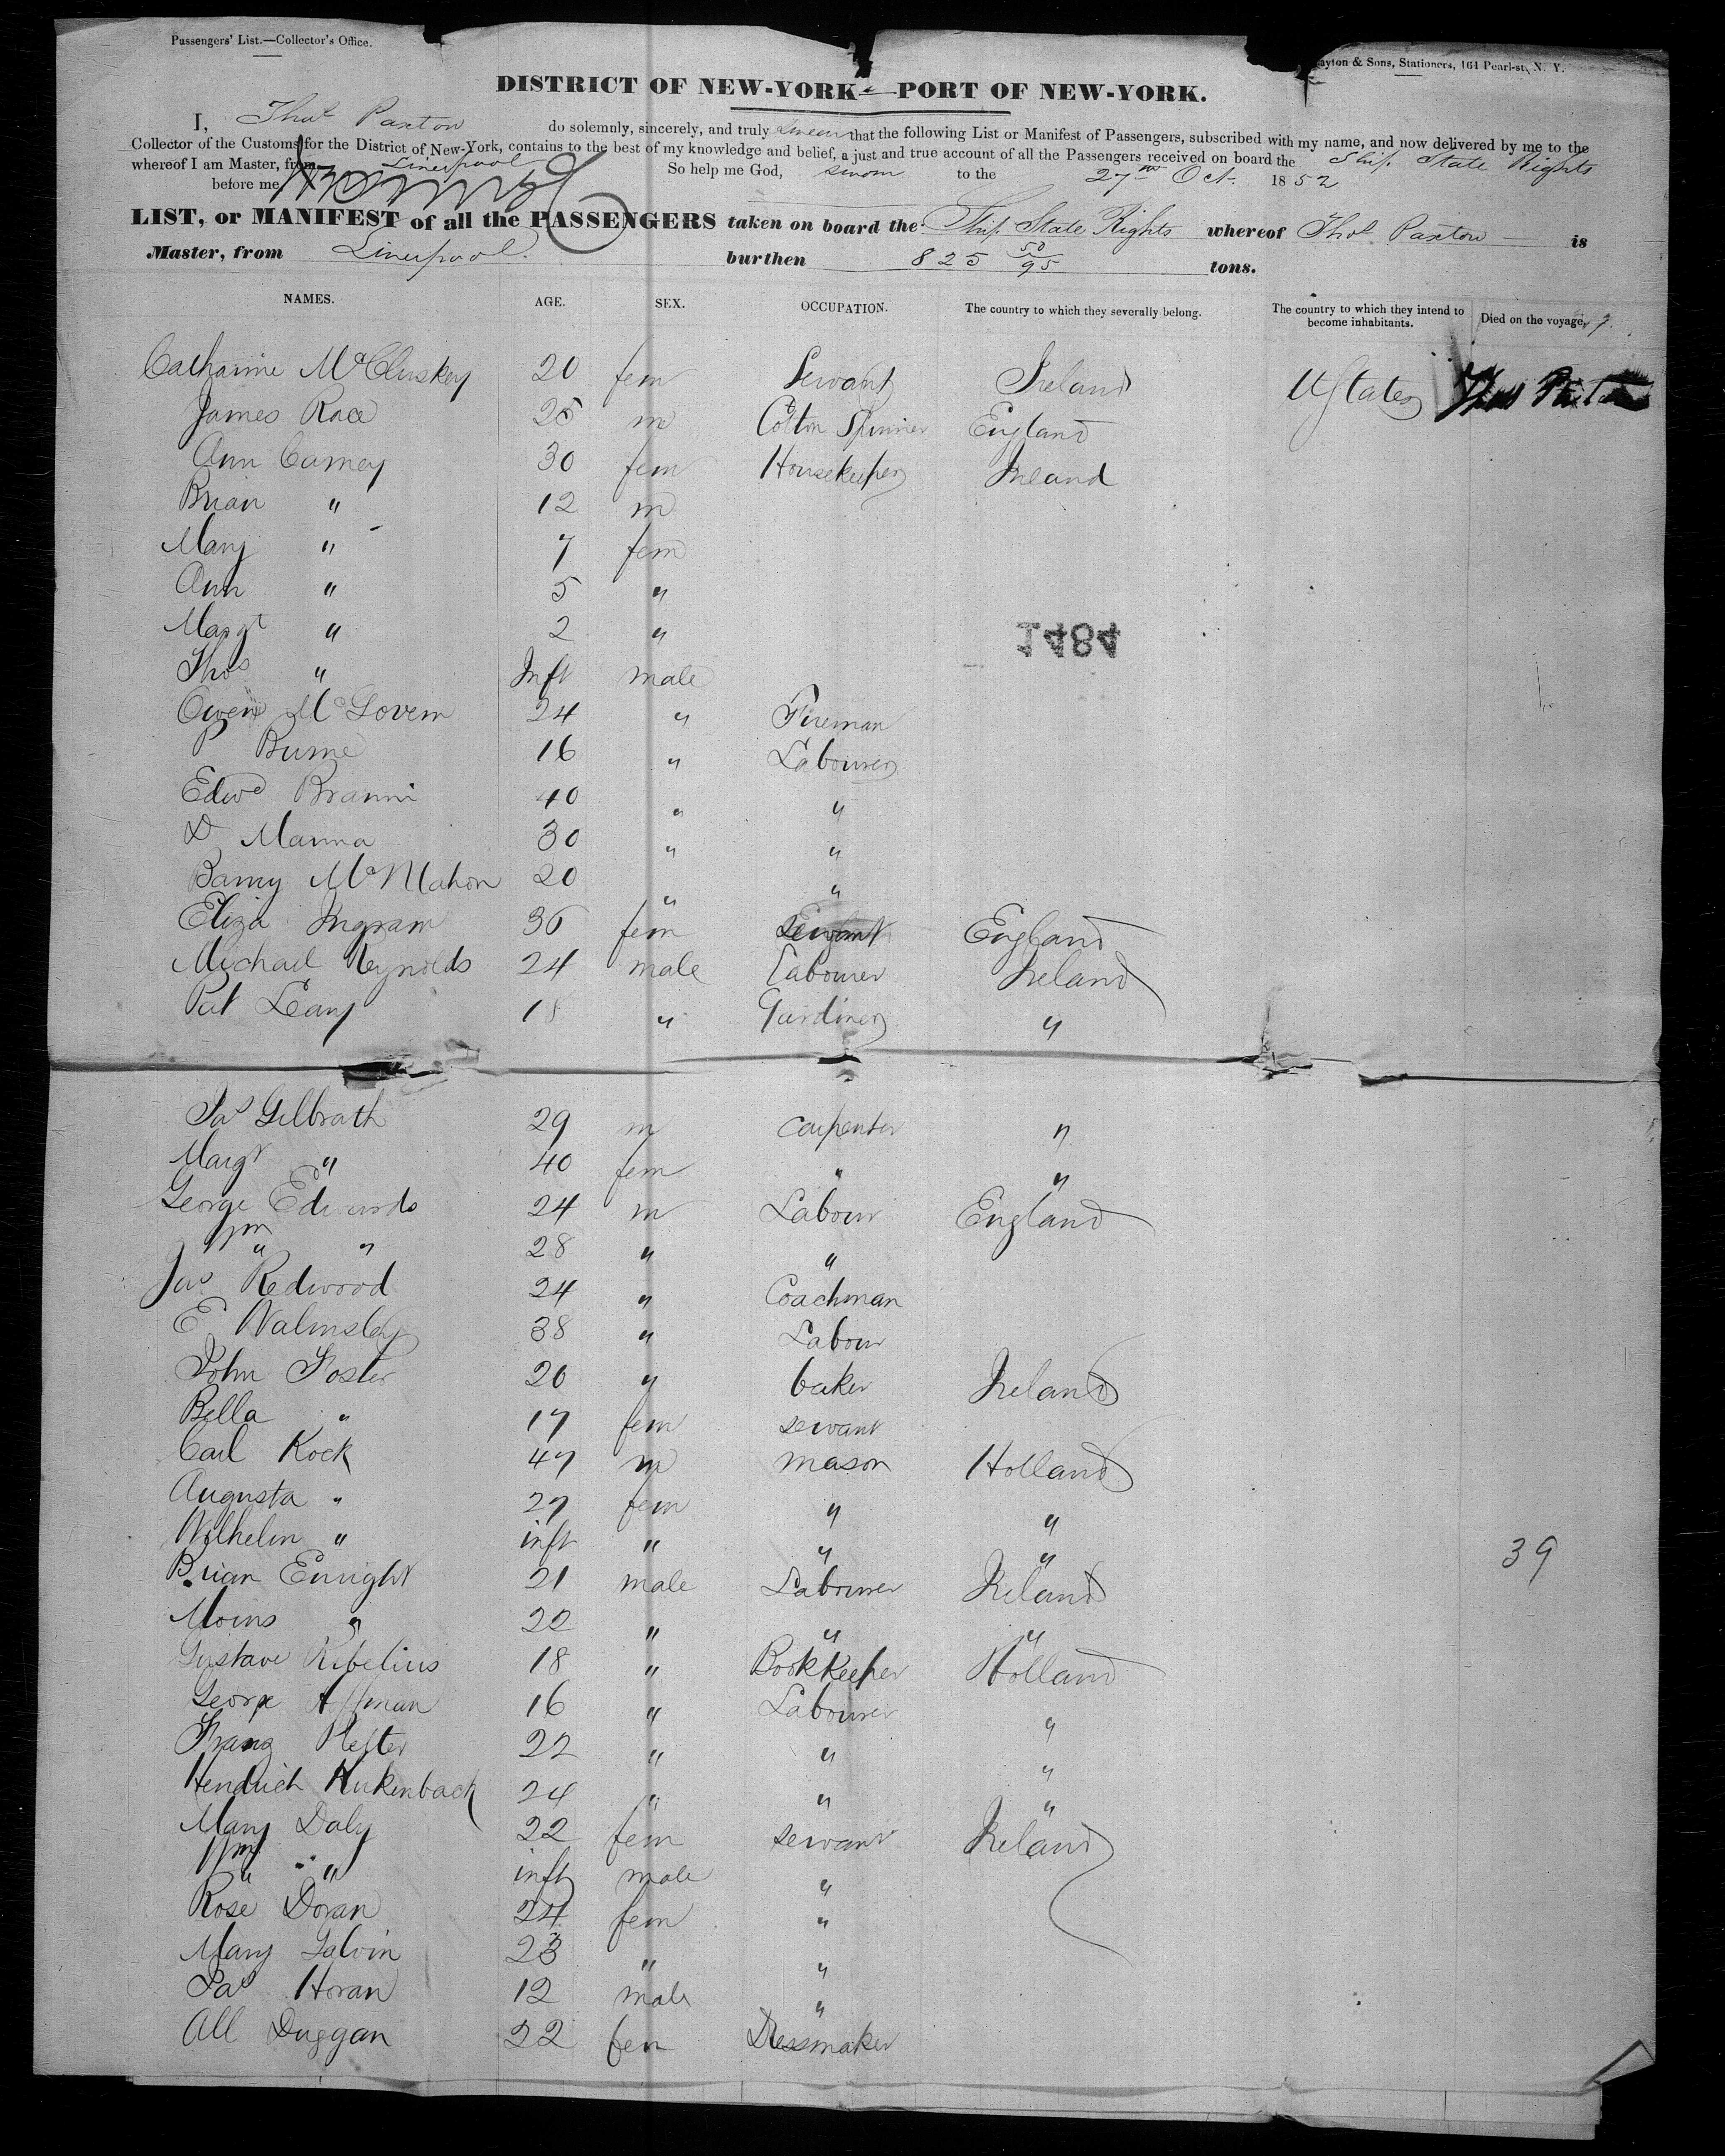 Passengers' List.—Collector's Office.
ayton & Sons, Stationers, 161 Pearl-st, N. Y.
DISTRICT OF NEW-YORK—PORT OF NEW-YORK.
I, Thos Paxton do solemnly, sincerely, and truly swear that the following List or Manifest of Passengers, subscribed with my name, and now delivered by me to the
Collector of the Customs for the District of New-York, contains to the best of my knowledge and belief, a just and true account of all the Passengers received on board the Ship State Rights
whereof I am Master, from Liverpool So help me God, sworn to the 27 Oct. 1852
before me
LIST, or MANIFEST of all the PASSENGERS taken on board the Ship State Rights whereof Thos Paxton is
Master, from Liverpool. burthen 825 50/95 tons.
NAMES. AGE. SEX. OCCUPATION. The country to which they severally belong. The country to which they intend to become inhabitants. Died on the voyage.
Catharine McCluskey 20 fem Servant Ireland UStates
James Race 25 m Cotton Spinner England
Ann Carney 30 fem Housekeeper Ireland
Brian " 12 m
Mary " 7 fem
Ann " 5 "
Margt " 2 "
1484
Thos " Inft male
Owen McGovern 24 " Fireman
P Burne 16 " Labourer
Edwd Branni 40 " "
D Manna 30 " "
Barney McMahon 20 " "
Eliza Ingram 36 fem Servant England
Michael Reynolds 24 male Labourer Ireland
Pat Leary 18 " Gardiner "
Jas Gilbrath 29 m carpenter "
Margt " 40 fem " "
George Edwards 24 m Labour England
Wm " " 28 " "
Jas Redwood 24 " Coachman
E Walmsley 38 " Labour
John Foster 20 " baker Ireland
Bella " 17 fem servant
Carl Kock 47 m mason Holland
Augusta " 27 fem " "
Wilhelm " inft " " "
39
Brian Enright 21 male Labourer Ireland
Moins " 22 " " "
Gustave Ribelius 18 " Bookkeeper Holland
George 16 " Labourer "
Franz 22 " " "
Hendrich Kukenback 24 " " "
Mary Daly 22 fem servant Ireland
Wm " " inft male "
Rose Doran 24 fem "
Mary Galvin 23 " "
Jas Horan 12 male "
All Duggan 22 fem Dressmaker